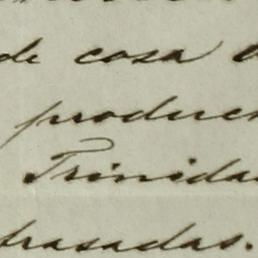 de cosa
produc
Trinida
trasadas.